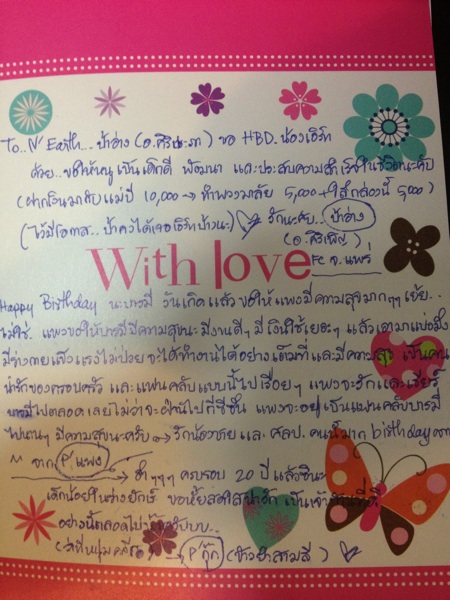 To.. N'Earth.. ป้าอ่าง (อ.ศิริประภา) ขอ HBD. น้องเอิร์ท
ด้วย.. ขอให้หนูเป็นเด็กดี พัฒนา และประสบความสำเร็จในชีวิตนะคับ
(ฝากเงินมากับแม่ปี 10,000 → ทำพวงมาลัย 5,000 + ใส่กล่องนี้ 5,000)
(ไว้มีโอกาส.. ป้าคงได้เจอเอิร์ทบ้างนะ) รักนะคับ.. ป้าอ่าง
With love
FC จ.แพร่
Happy Birthday นะบารมี วันเกิดแล้ว ขอให้แพงมีความสุขมากๆๆ เย้ย..
ไม่ใช่. แพงขอให้บารมีมีความสุขนะ มีงานดีๆ มีเงินใช้เยอะๆ แล้วเอามาแบ่งมั่ง
มีร่างกายแข็งแรงไม่ป่วย จะได้ทำงานได้อย่างเต็มที่ และมีความสุข เป็นคน
น่ารักของครอบครัว และแฟนคลับแบบนี้ไปเรื่อยๆ แพงจะรักและเชียร์
บารมีไปตลอดเลยไม่ว่าจะผ่านไปกี่ซีซั่น แพงจะอยู่เป็นแฟนคลับบารมี
ไปนานๆ มีความสุขนะครับ รักน้องชาย และ ศิลปิน คนนี้มาก birthday
จาก P'แพง → ครบรอบ 20 ปี แล้วซินะ
เด็กน้อยในร่างยักษ์ ขอให้สดใสน่ารัก เป็น
อย่างนี้ตลอดไป
→ P'กุ๊ก